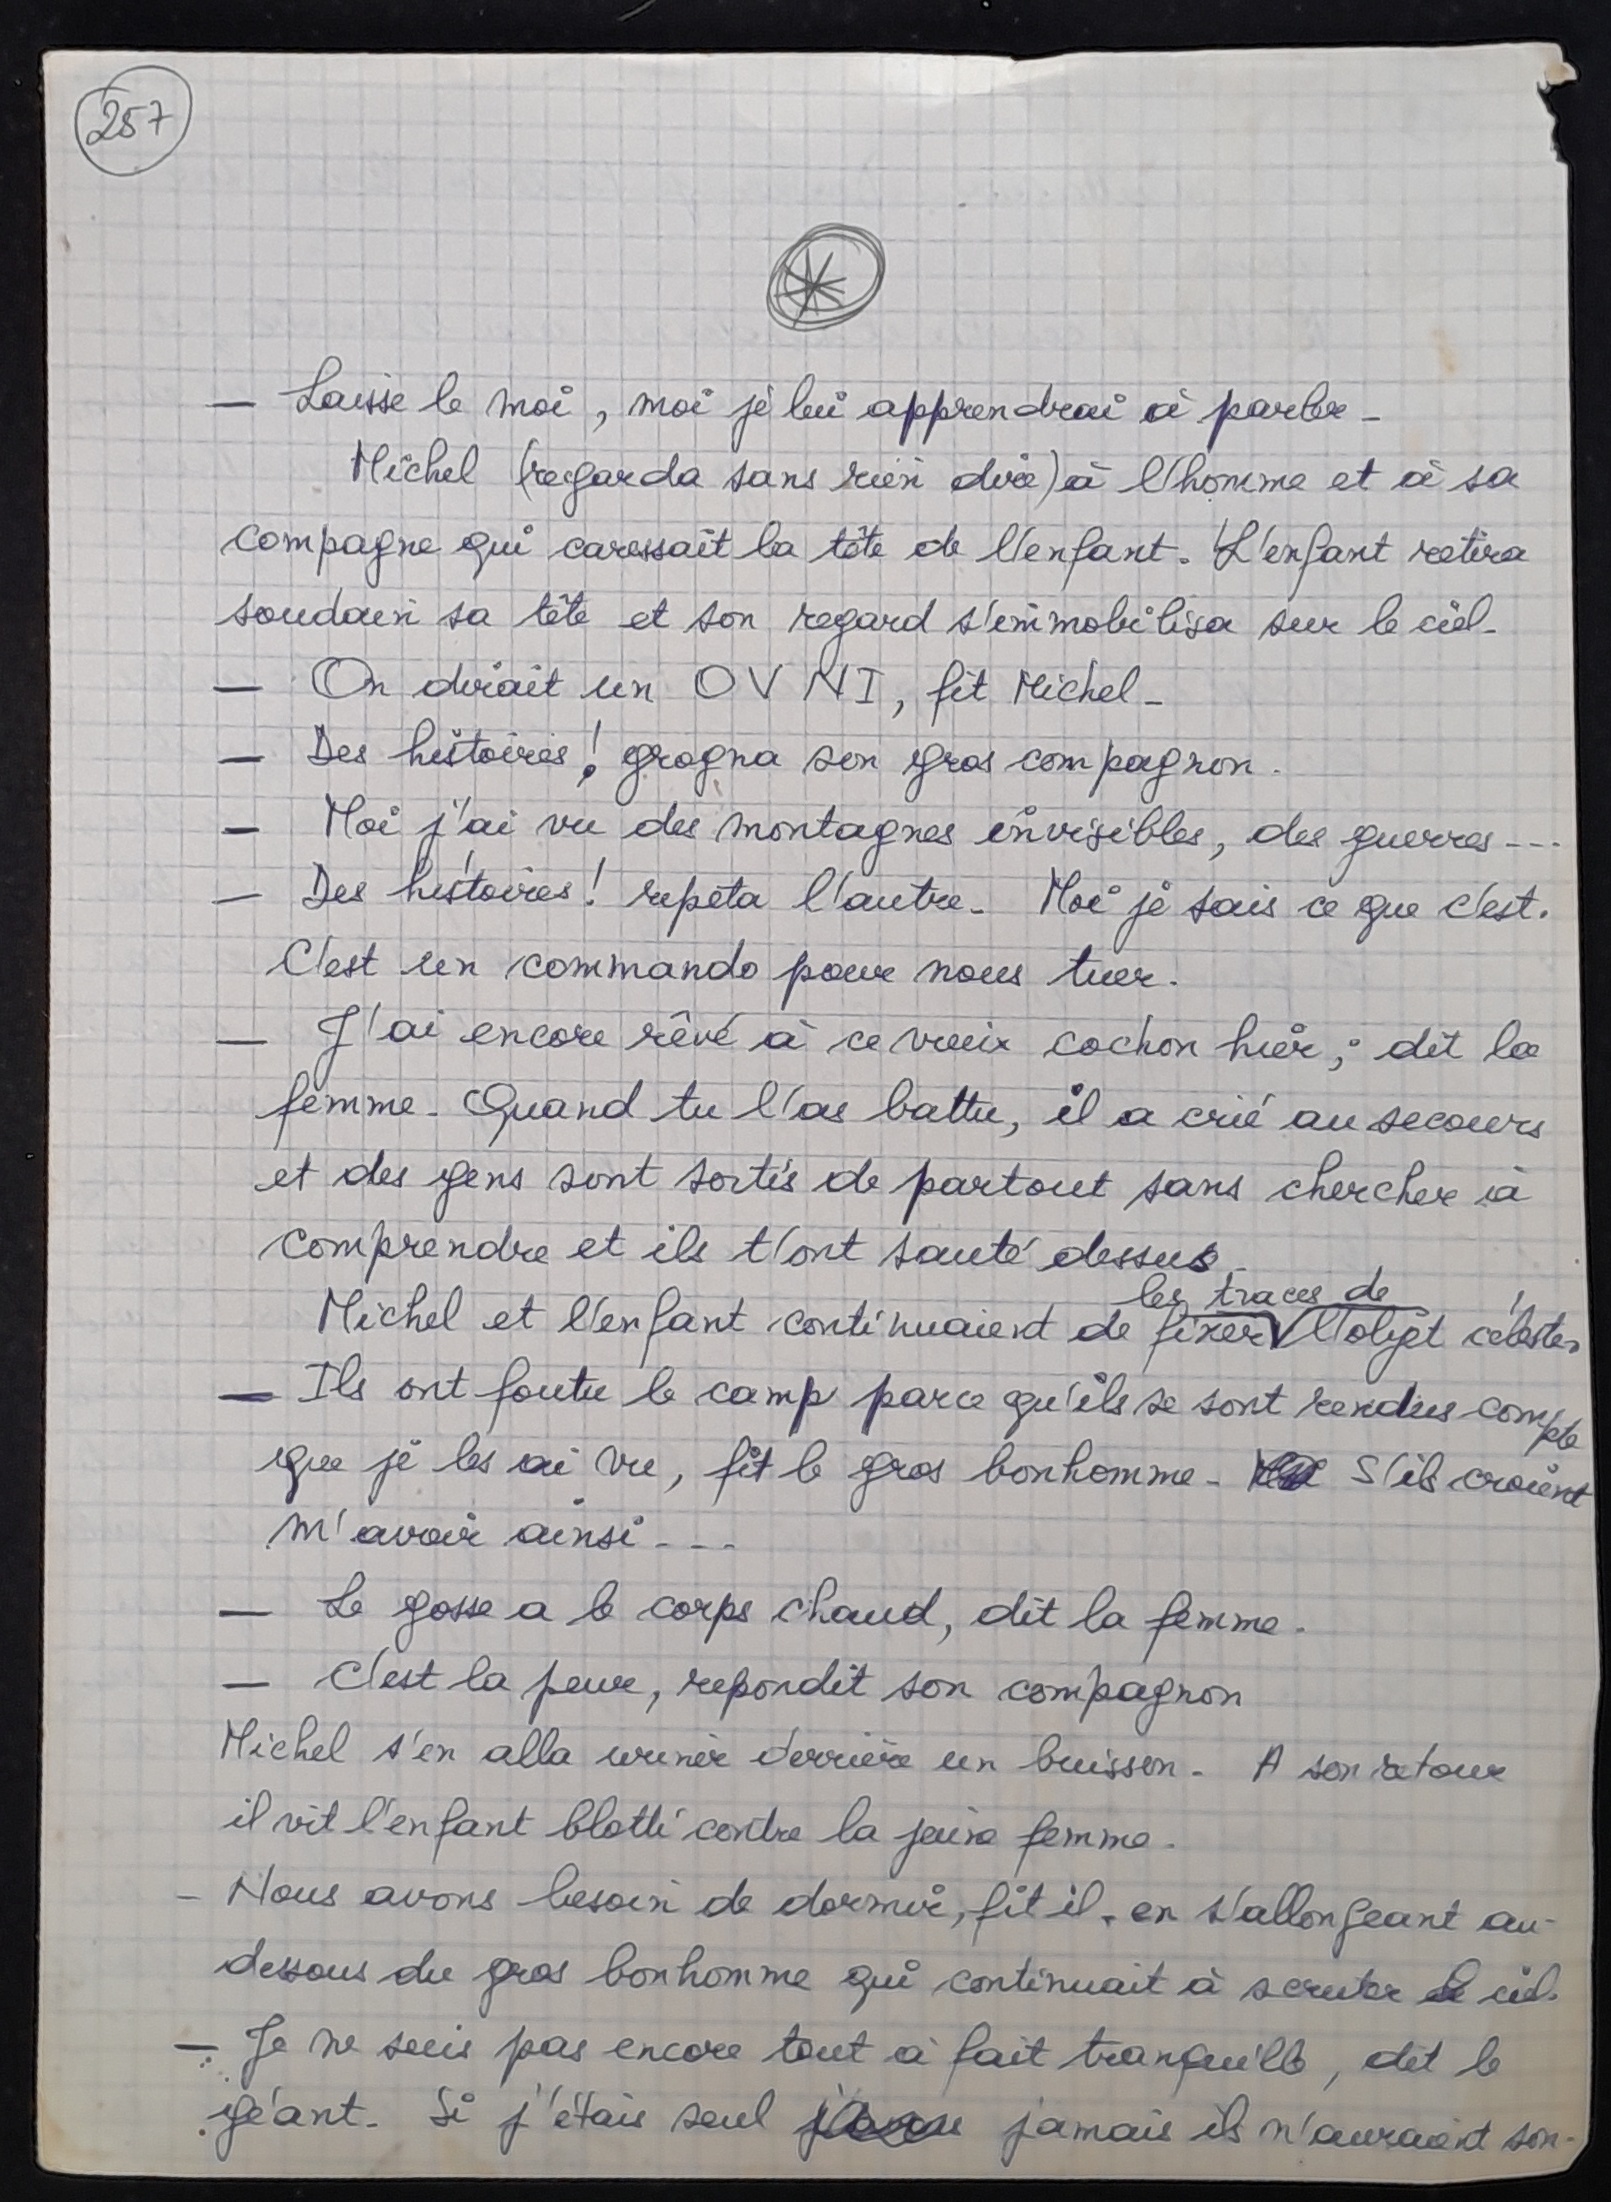 257
— Laisse le moi, moi je lui apprendrai à parler -
Michel (regarda sans rien dire) à l'homme et à sa
compagne qui caressait la tête de l'enfant. L'enfant retira
soudain sa tête et son regard s'immobilisa sur le ciel -
— On dirait un OVNI, fit Michel -
— Des histoires ! grogna son gros compagnon.
— Moi j'ai vu des montagnes invisibles, des guerres ---
— Des histoires ! repéta l'autre - Moi je sais ce que c'est.
C'est un commando pour nous tuer.
— J'ai encore rêvé à ce vieux cochon hier, dit la
femme - Quand tu l'as battu, il a crié au secours
et des gens sont sortis de partout sans chercher à
comprendre et ils t'ont sauté dessus -
les traces de
Michel et l'enfant continuaient de fixer l'objet céleste.
— Ils ont foutu le camp parce qu'ils se sont rendus compte
que je les ai vu, fit le gros bonhomme - S'ils croient
m'avoir ainsi ---
— Le gosse a le corps chaud, dit la femme.
— C'est la peur, repondit son compagnon
Michel s'en alla uriner derrière un buisson - A son retour
il vit l'enfant blotti contre la jeune femme.
- Nous avons besoin de dormir, fit il - en s'allongeant au-
dessous du gros bonhomme qui continuait à scruter le ciel.
— Je ne suis pas encore tout à fait tranquille, dit le
géant - Si j'étais seul jamais ils n'auraient son-